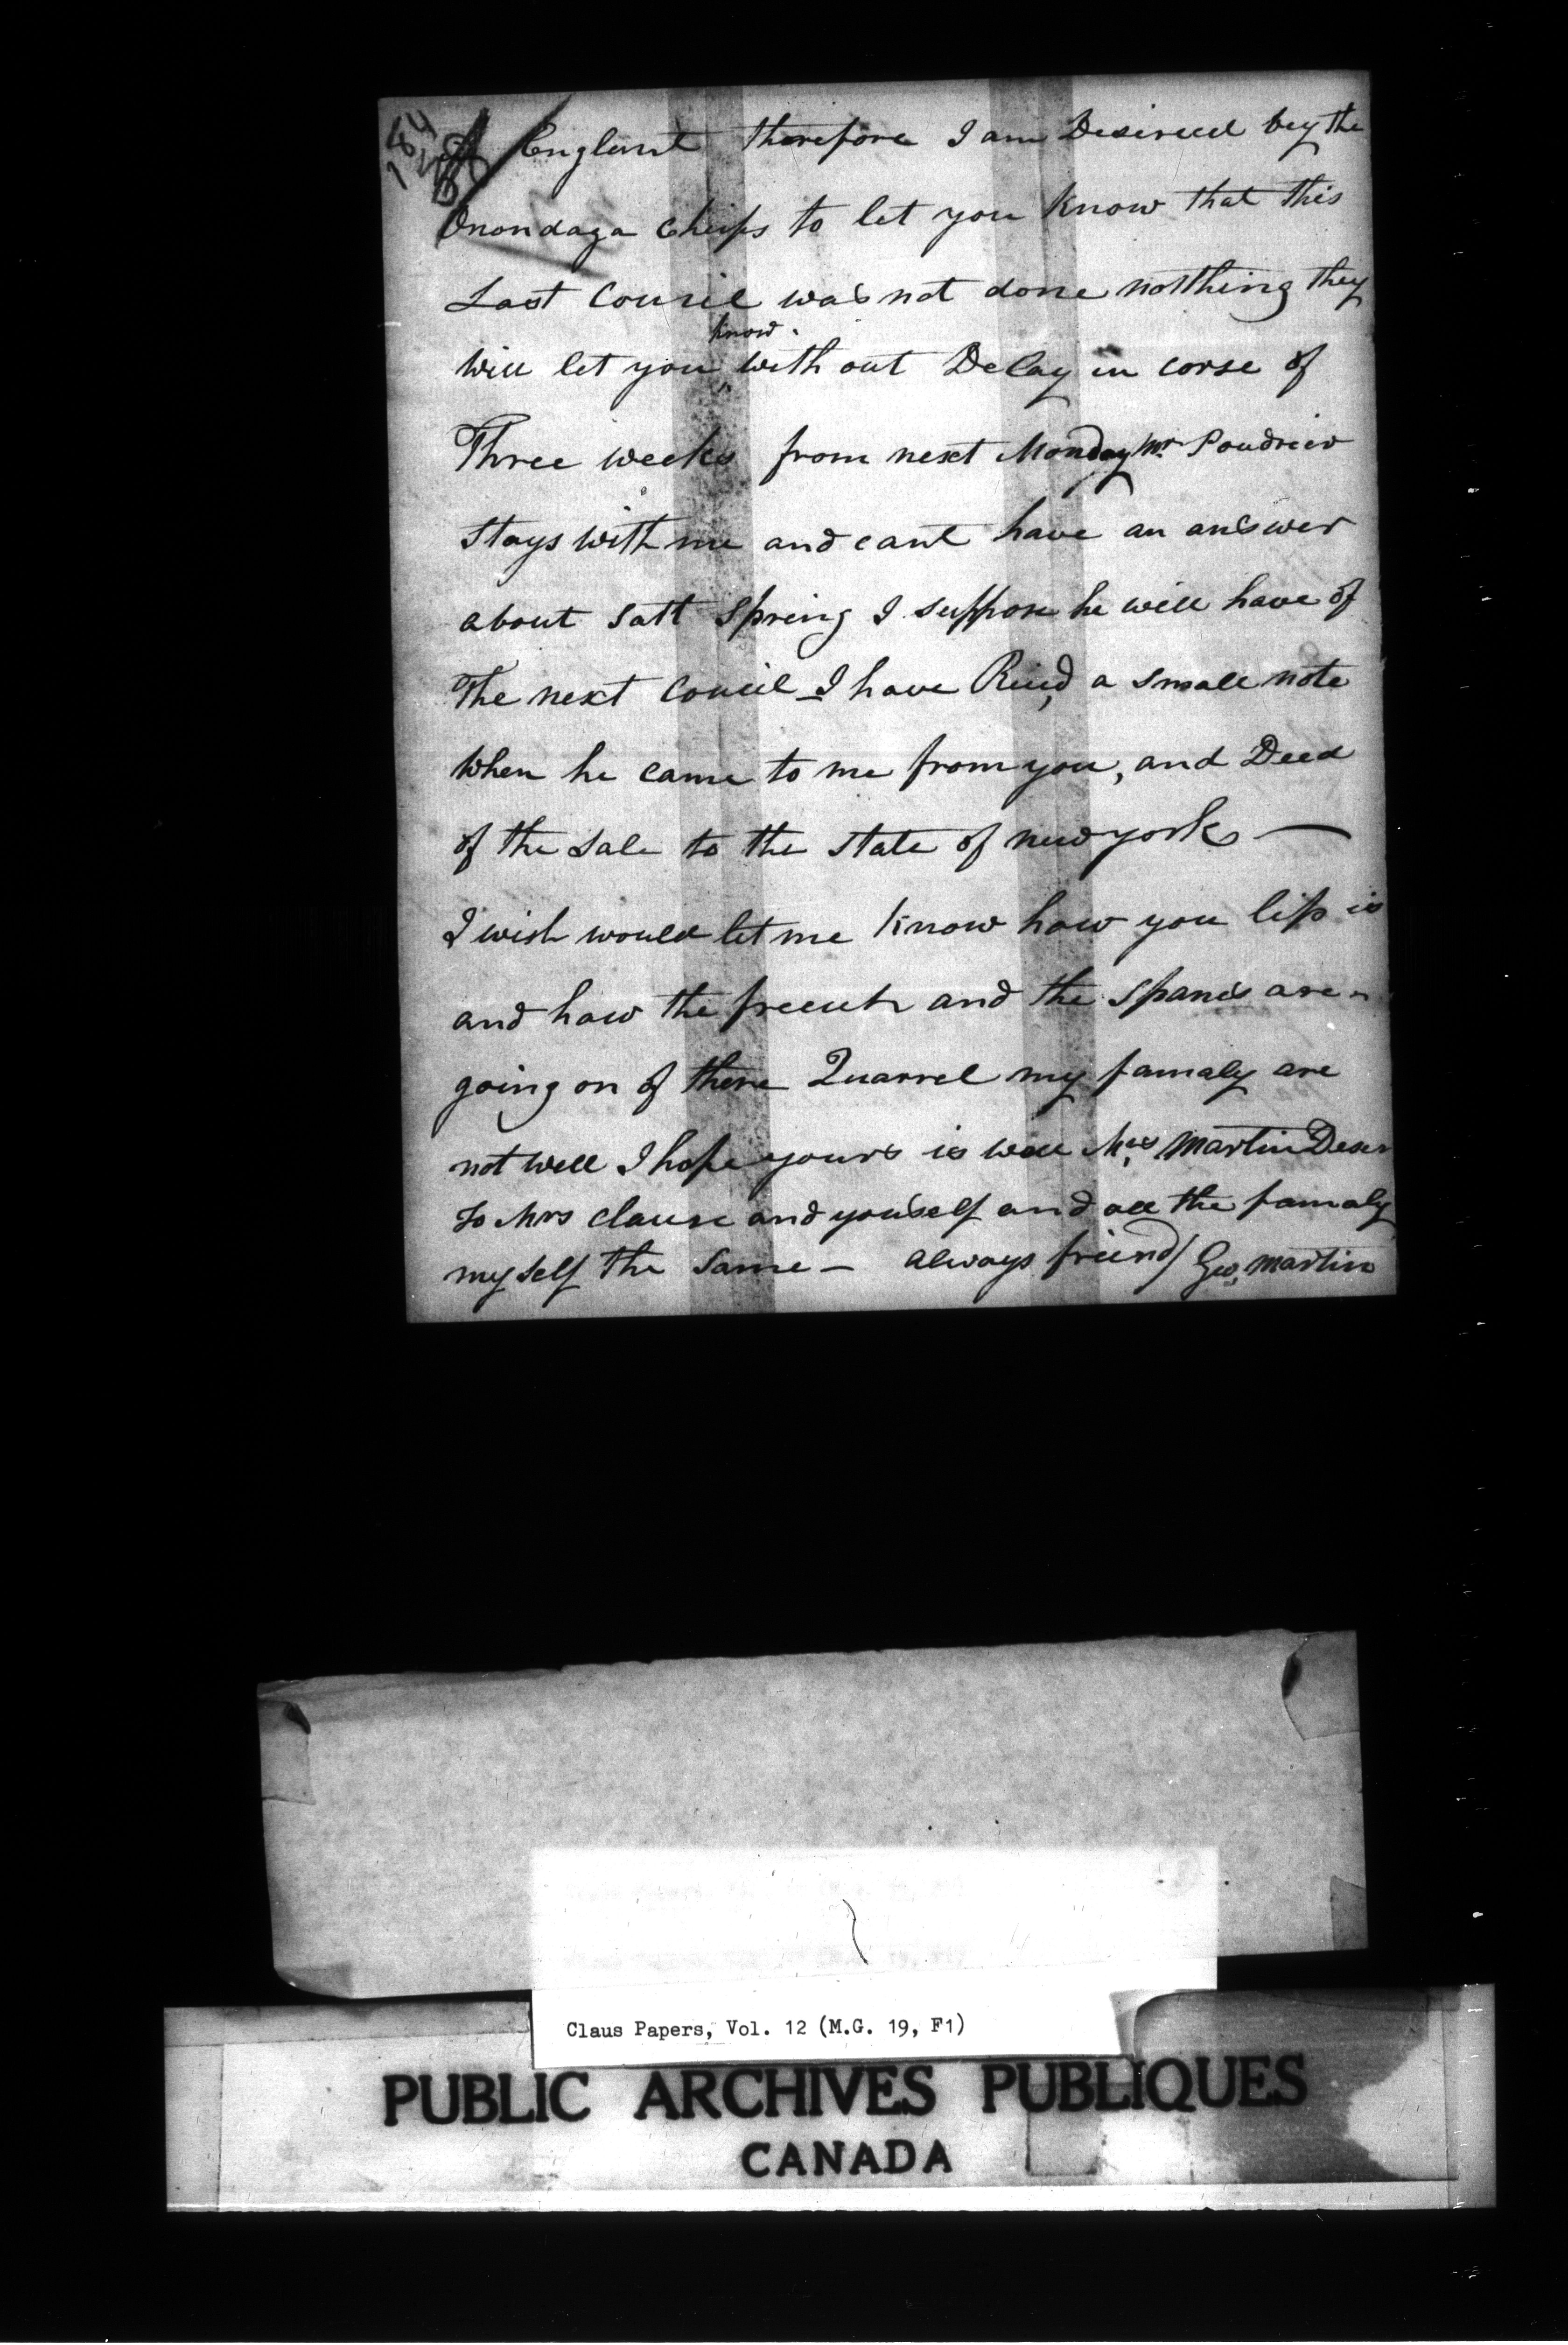 184
England therefore I am Desireed bey the
Onondaga cheifs to let you know that this
Last Councie was not done notthing they
know
will let you with out Delay in corse of
Three weeks from next Monday Mr Poudriev
stays with me and cant have an answer
about satt spring I suppose he will have of
The next Coucil I have Reied a small note
when he came to me from you, and Deed
of the sale to the state of new york —
I wish would let me know how you lips is
and how the freench and the spanis are
going on of there Quarrel my famaly are
not well I hope yours is well Mrs Martin Desir
to Mrs clause and youself and all the famaly
my self the same — always friend / Geo, Martin
Claus Papers, Vol. 12 (M.G. 19, F1)
PUBLIC ARCHIVES PUBLIQUES
CANADA